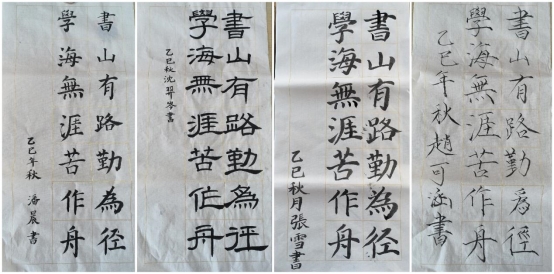 書山有路勤為徑
學海無涯苦作舟
乙巳年秋 潘晨書
書山有路勤為徑
學海無涯苦作舟
乙巳秋沈翠岑書
書山有路勤為徑
學海無涯苦作舟
乙巳秋月張雪書
書山有路勤為徑
學海無涯苦作舟
乙巳年秋趙可涵書